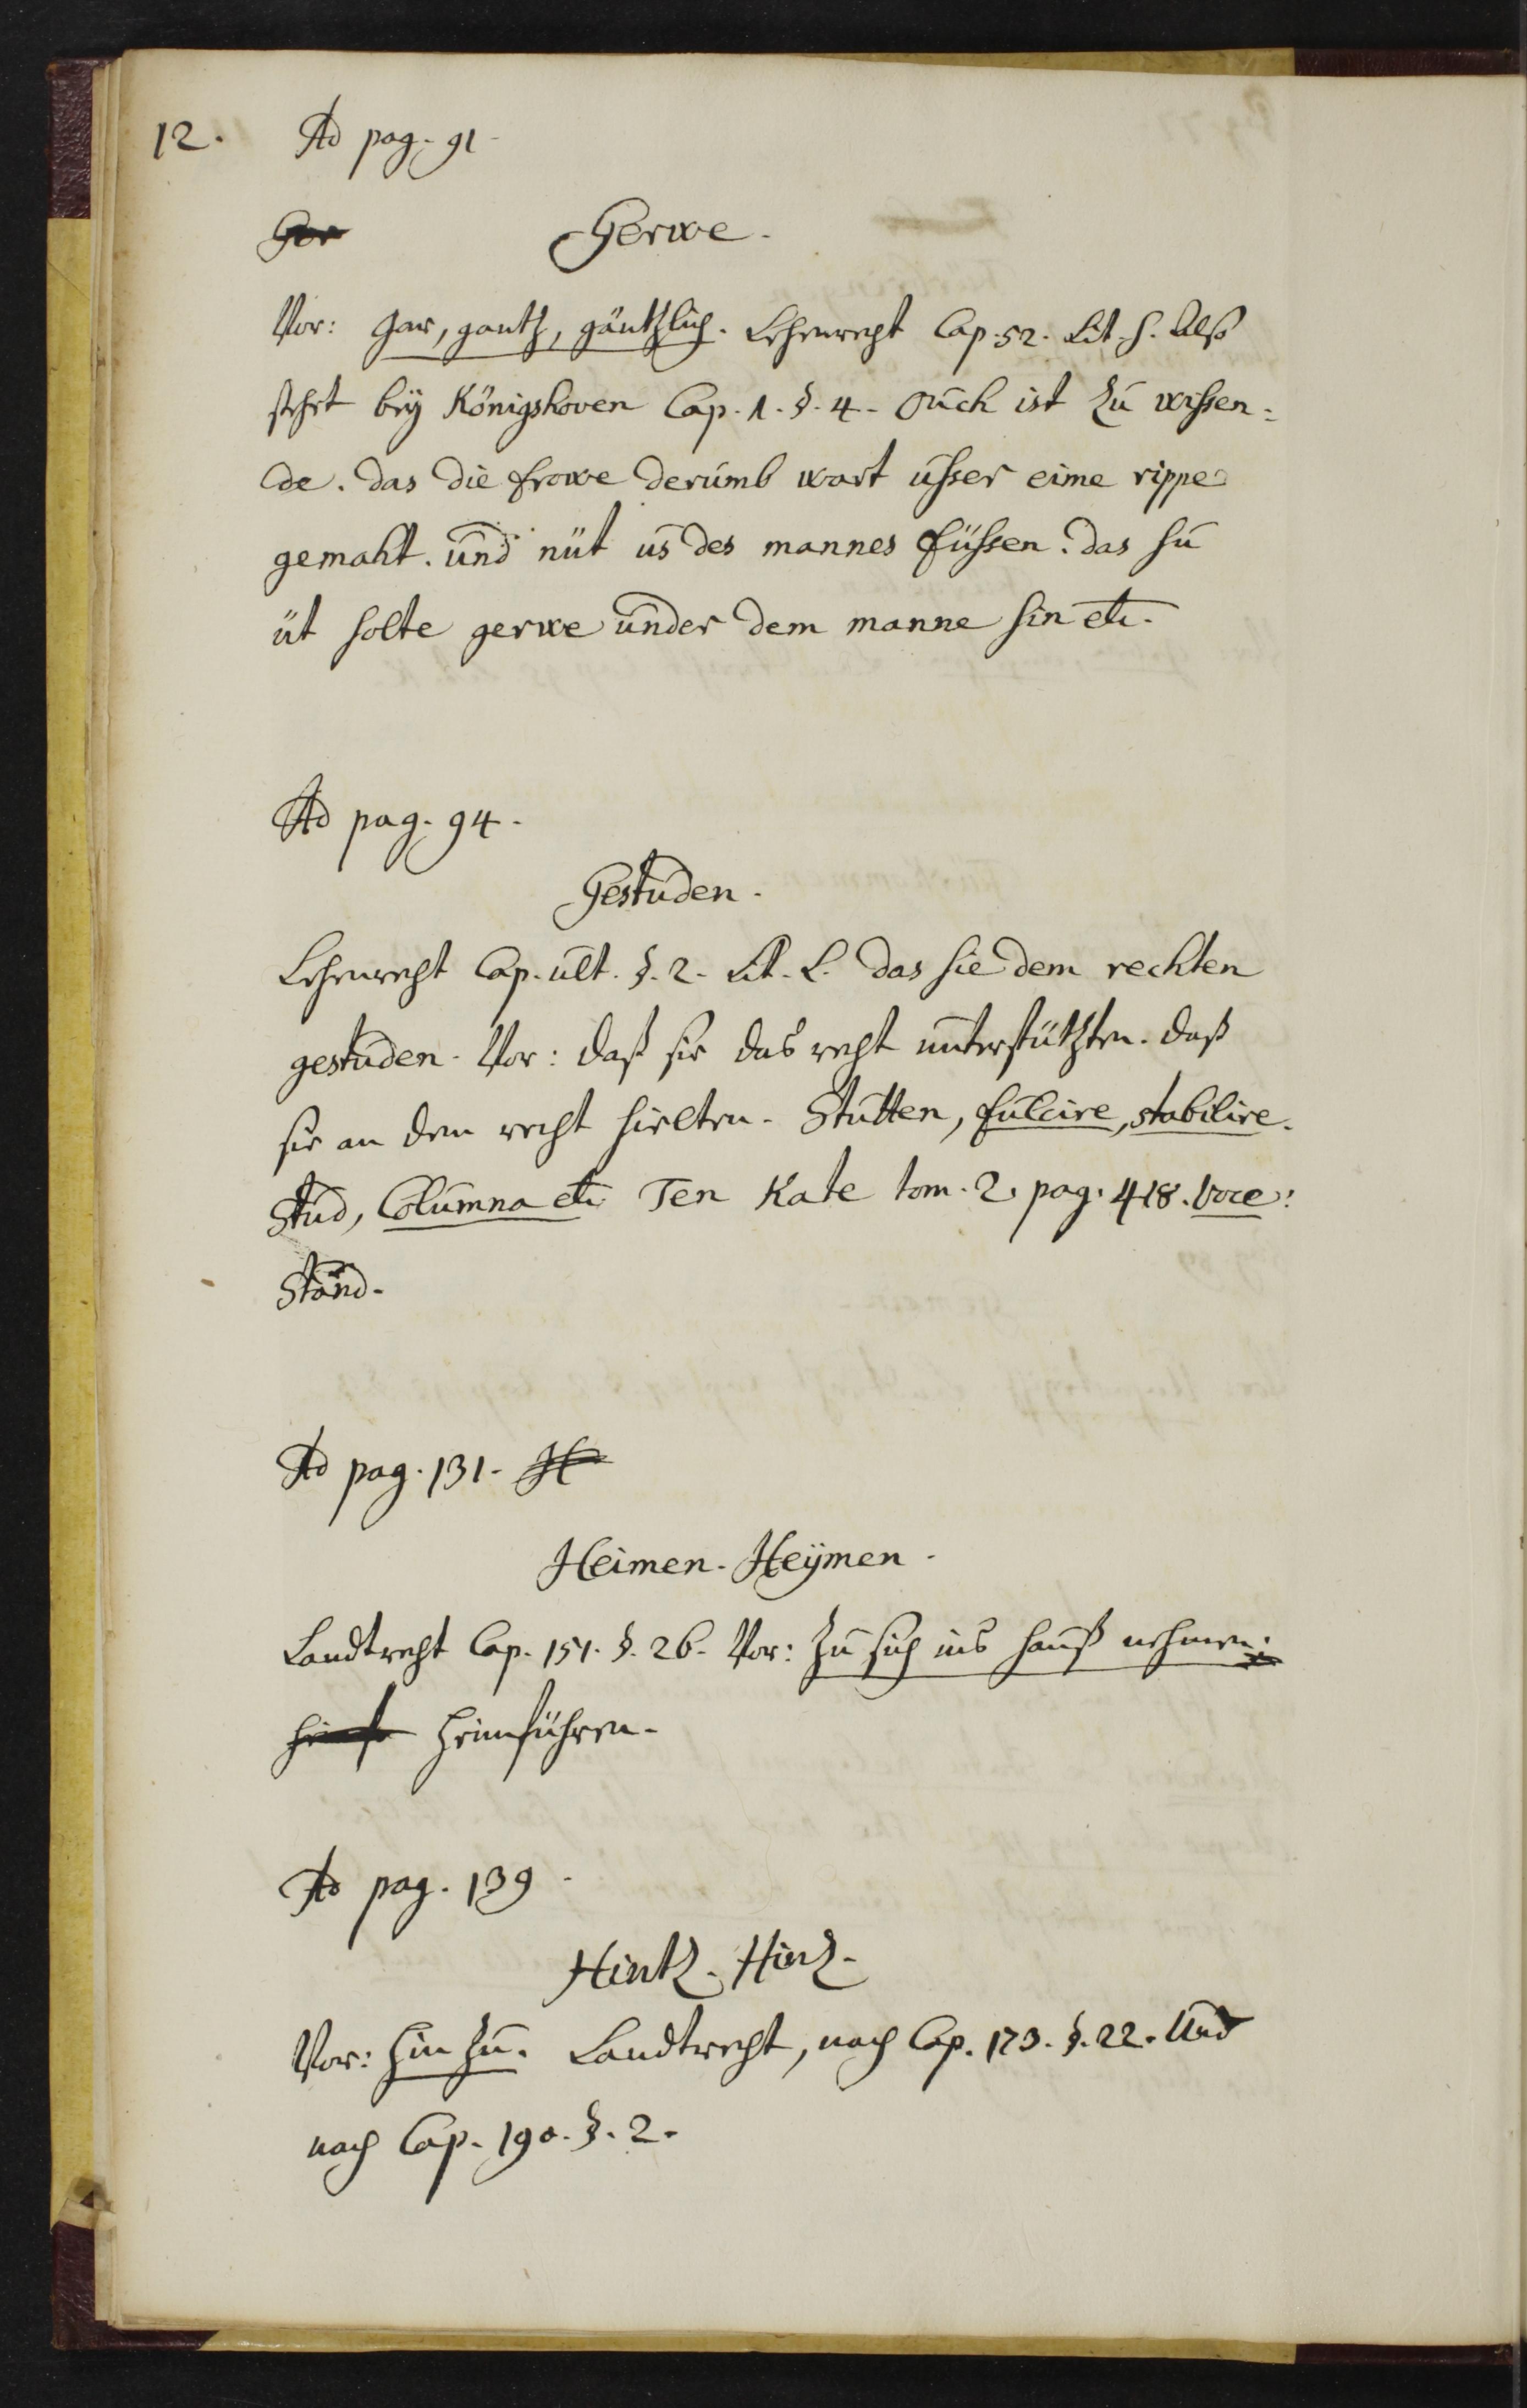 12. Ad pag. 91.
Ger Gerwe.
Vor: gar, gantz, gäntzlich. Lehenrecht Cap. 52. Lit. h. Alß
stehet beÿ Königshoven Cap. 1. §. 4. Ouch ist zu wissen=
de. das die frowe derumb wart usser eime rippe
gemaht. und nüt us des mannes füssen. das su
üt solte gerwe under dem manne sin etc.
Ad pag. 94.
Gestuden.
Lehenrecht Cap. ult. §. 2. Lit. L. das sie dem rechten
gestuden. Vor: daß sie das recht unterstützten. daß
sie an dem recht hielten. Stutten, fulcire, stabilire.
Stud, Columna etc. Ten Kate tom. 2. pag. 418. voce:
Stand.
Ad pag. 131. H
Heimen. Heÿmen.
Landtrecht Cap. 151. §. 26. Vor: zu sich ins hauß nehmen.
heimf heimführen.
Ad pag. 139.
Hintz. Hinz.
Vor: hin zu. Landtrecht, nach Cap. 173. §. 22. Und
nach Cap. 190. §. 2.